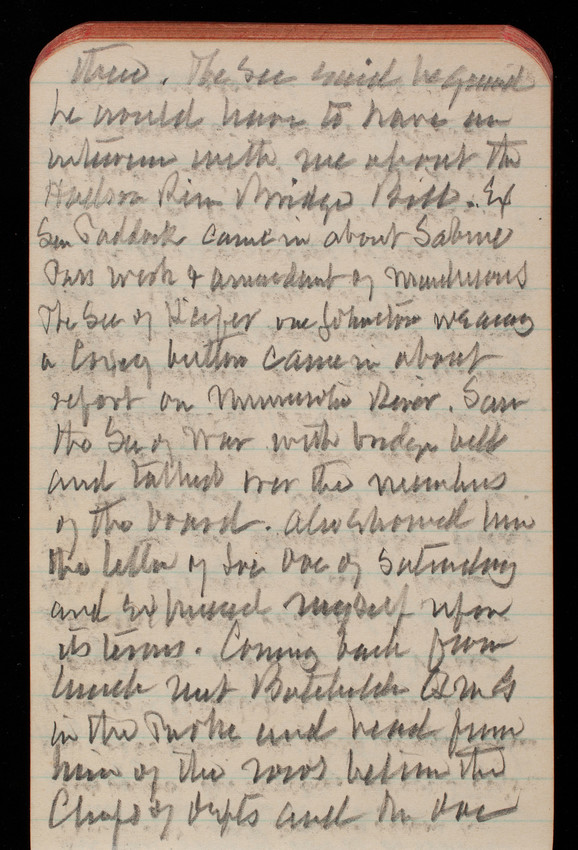 there. The Sec said he
he would have to have an
interview with me about the
Hudson River Bridge Bill. Ex
Sen Paddock came in about Sabine
Pass work & amendment of
The Sec of Kiefer one Johnston wearing
a Loyal button came in about
report on Minnesota River. Saw
the Sec of War with bridge bill
and talked over the members
of the board. Also showed him
the letter of Sec Doe of Saturday
and expressed myself upon
its terms. Coming back from
lunch met Batchelder QMG
in the Park and heard from
him of the rows between the
Chiefs of Depts and Mr Doe